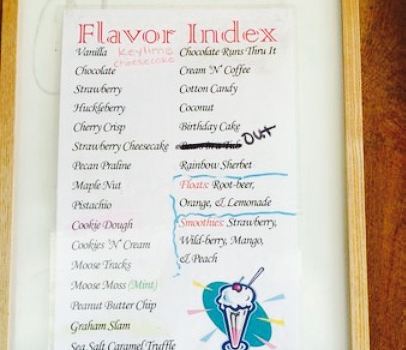 Flavor Index
Vanilla
keylime
cheesecake
Chocolate
Strawberry
Huckleberry
Cherry Crisp
Strawberry Cheesecake
Pecan Praline
Maple Nut
Pistachio
Cookie Dough
Cookies 'N' Cream
Moose Tracks
Moose Moss (Mint)
Peanut Butter Chip
Graham Slam
Sea Salt Caramel Truffle
Chocolate Runs Thru It
Cream 'N' Coffee
Cotton Candy
Coconut
Birthday Cake
Bears in a Tub OUT
Rainbow Sherbet
Floats: Root-beer,
Orange, & Lemonade
Smoothies: Strawberry,
Wild-berry, Mango,
& Peach